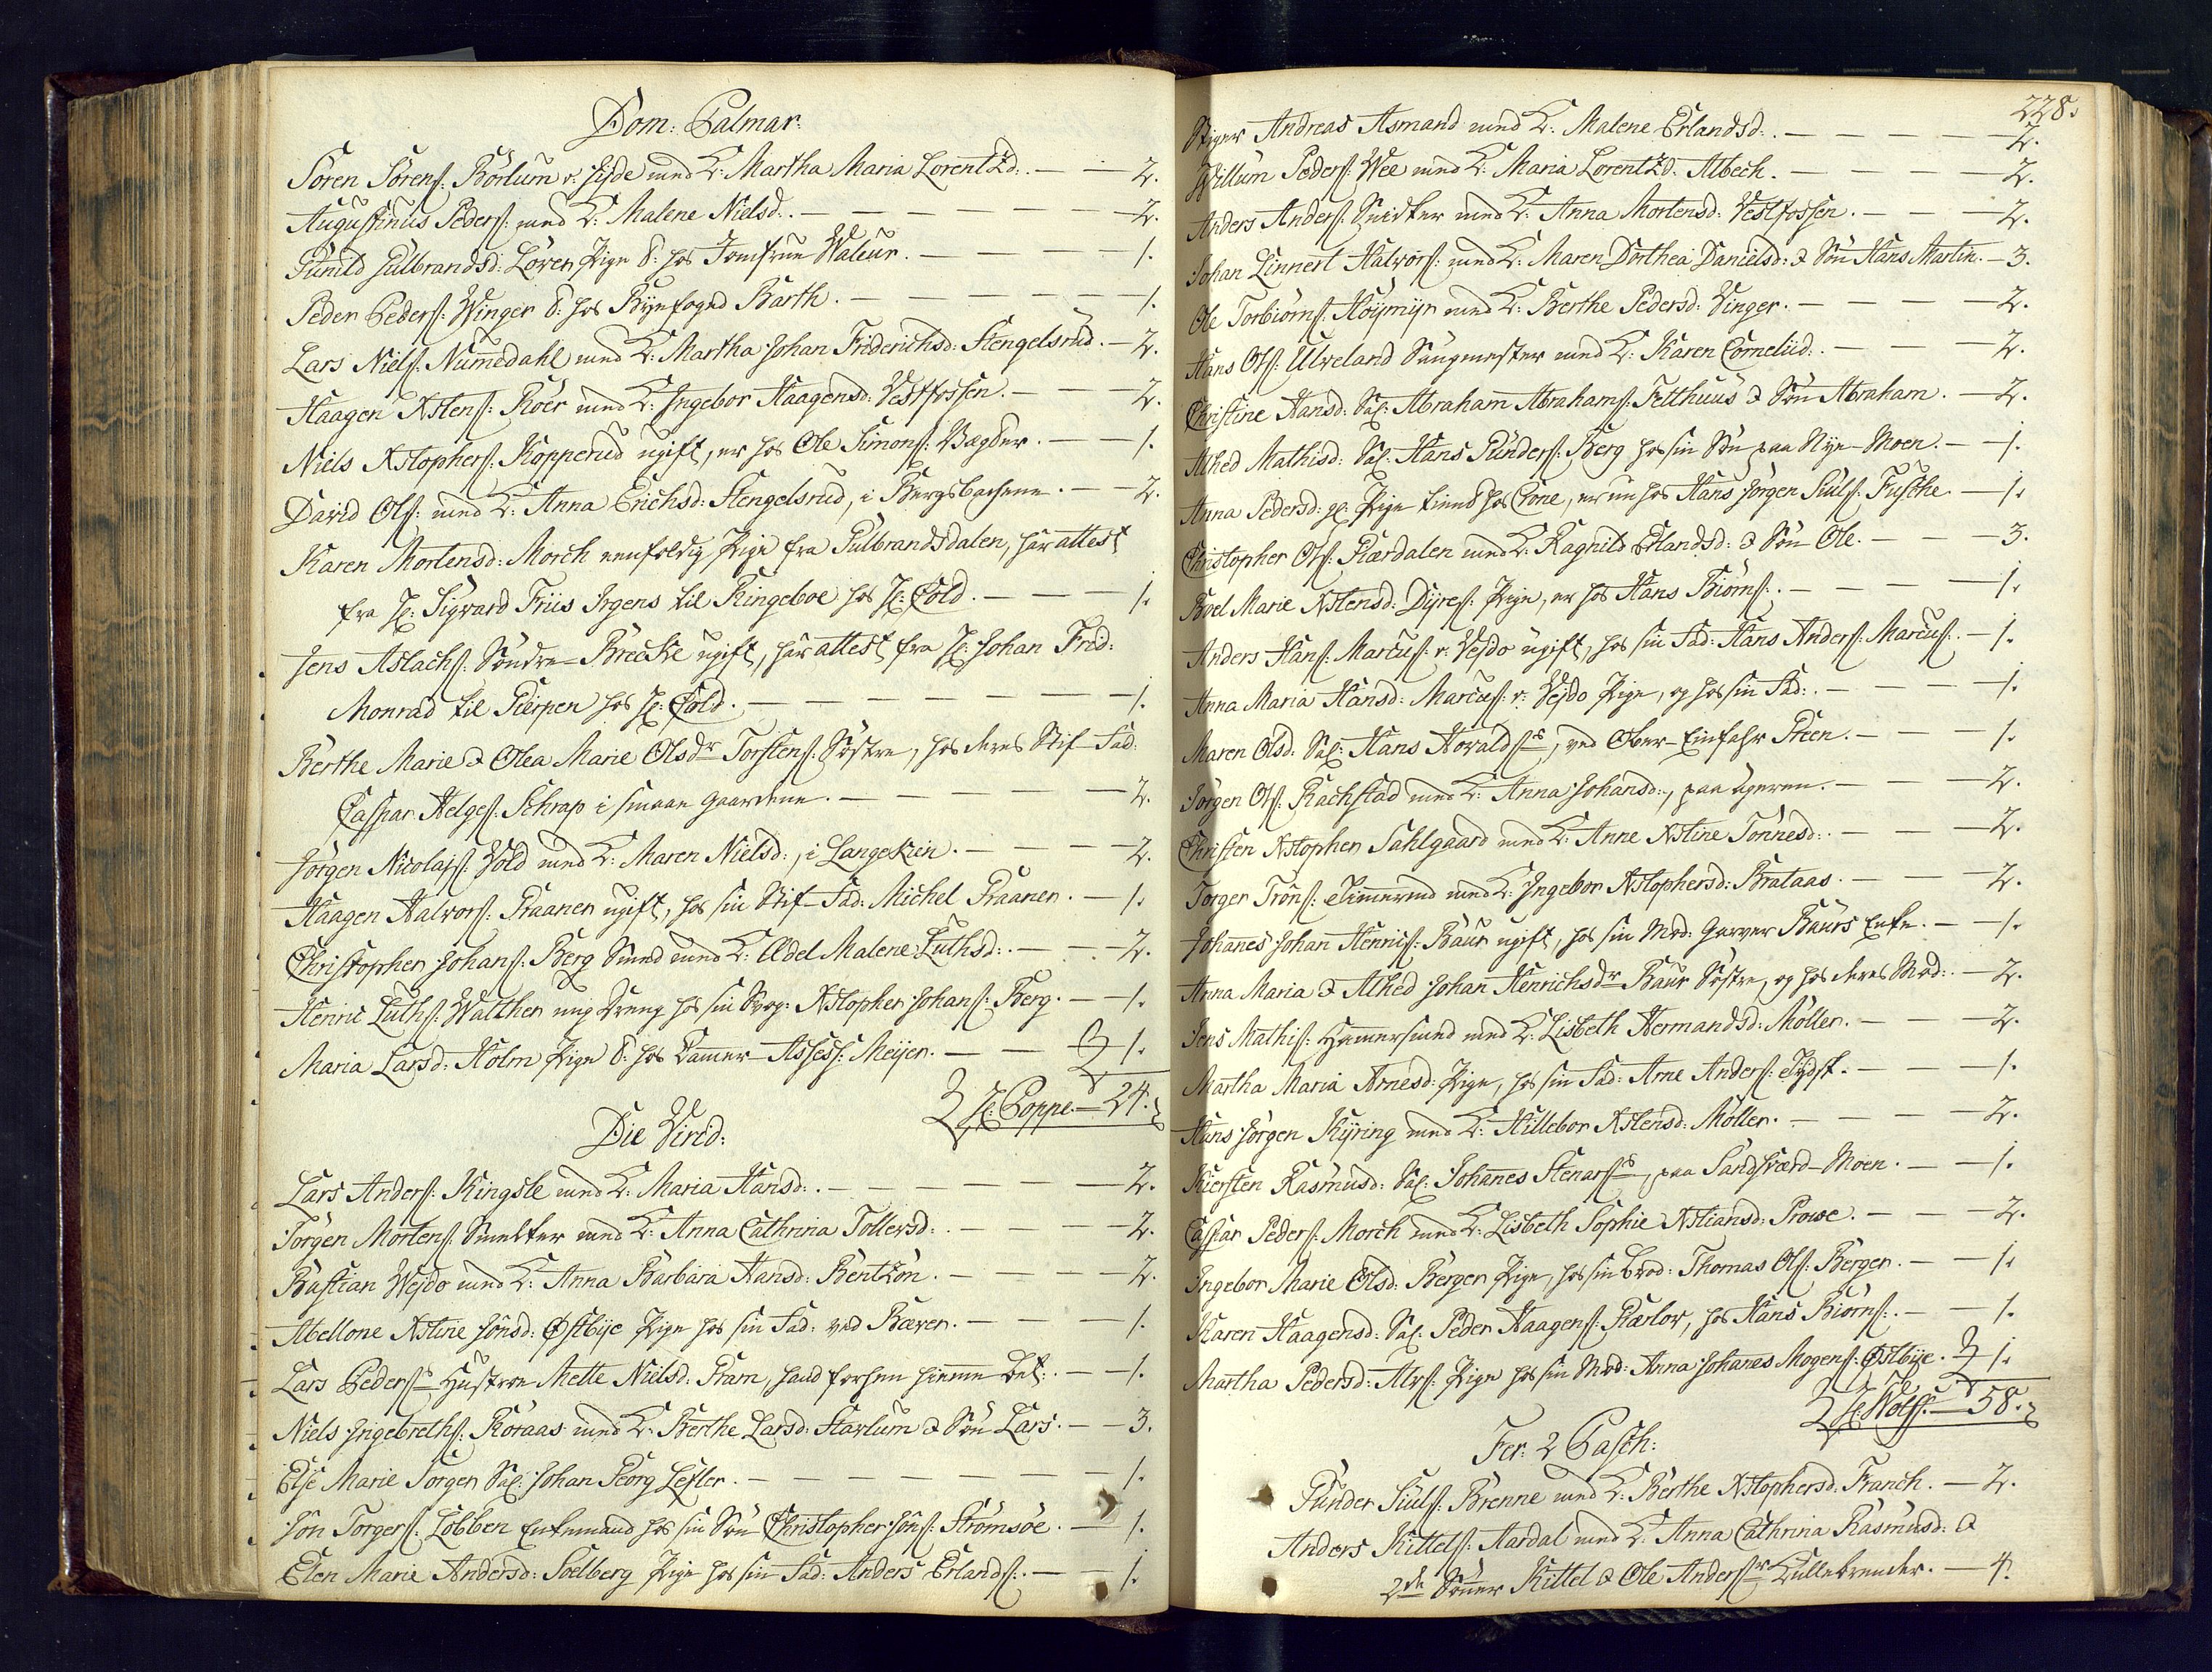 Dom: Palmar:
Sören Sörens: Börlum v: Heyde med K: Martha Maria Lorentzd:. — — 2.
Augustinus Peders: med K: Malene Nielsd:. — — — — — 2.
Gunild Gulbrandsd: Löver Pige T: hos Jomfrue Waleur. — — — 1.
Peder Peders: Winger T: hos Byefoged Barth. — — — — 1.
Lars Niels: Numedahl med K: Martha Johan Friderichsd: Stengelsrud. — 2.
Haagen Xstens: Roer med K: Ingebor Haagensd: Vestfossen. — — — 2.
Niels Xstophers: Kopperud ugift, er hos Ole Simons: Vægter. — — 1.
David Ols: med K: Anna Erichsd: Stengelsrud, i Bergsbachene. — — 2.
Karen Mortensd: Morch eenfoldig Pige fra Gulbrandsdalen, har attest
fra H: Sigvard Friis Irgens til Ringeboe hos H: Cold. — — — 1.
Jens Aslachs: Söndre-Brecke ugift, har attest fra H: Johan Frid:
Monrad til Gierpen hos H: Cold. — — — — — 1.
Berthe Marie & Olea Marie Olsdr Torstens: Söstre, hos deres Stif-Fad:
Caspar Helges: Schrap i smaae Gaardene. — — — — 2.
Jörgen Nicolajs: Vold med K: Maren Nielsd:, i Langekien. — — — 2.
Haagen Halvors: Praanen ugift, hos sin Stif-Fad: Michel Praanen. — 1.
Christopher Johans: Berg Smed med K: Ædel Malene Luthsd:. — — 2.
Henric Luths: Walther ung Dreng hos sin Svog: Xstopher Johans: Berg. — 1.
Maria Larsd: Holm Pige T: hos Kamer-Assess: Meyer. — — 1.
H: Poppe. — 24.
Die Virid:
Lars Anders: Kingsle med K: Maria Hansd:. — — — — 2.
Jörgen Mortens: Smelter med K: Anna Cathrina Tollersd: — — — 2.
Bastian Wejdo med K: Anna Barbara Hansd: Bentzön. — — — 2.
Abellone Xstine Jönsd: Østbye Pige hos sin Fad: ved Bæver. — — — 1.
Lars Peders: Hustroe Mette Nielsd: Ram, hand forhen hiemme bet:. — 1.
Niels Ingebreths: Röraas med K: Berthe Larsd: Harlum & Sön Lars. — — 3.
Else Marie Jörgen Sal: Johan Georg Lesler. — — — — — 1.
Jön Torgers: Löbben Enkemand hos sin Sön Christopher Jöns: Strömsöe. — 1.
Elen Marie Andersd: Soelberg Pige hos sin Fad: Anders Erlands:. — — 1.
228.
Stiger Andreas Asmand med K: Malene Erlandsd:. — — — — 2.
Willum Peders: Wee med K: Maria Lorentzd: Albech. — — — 2.
Anders Anders: Snidker med K: Anna Mortensd: Vestfossen. — — — 2.
Johan Linnert Halvors: med K: Maren Dorthea Danielsd: & Sön Hans Martin. — 3.
Ole Torbiörns: Höymyr med K: Berthe Pedersd: Vinger. — — — 2.
Hans Ols: Ulveland Saugmester med K: Karen Corneliid:. — — — 2.
Christine Hansd: Sal: Abraham Abrahams: Fetthuus & Sön Abraham. — 2.
Alhed Mathisd: Sal: Hans Gunders: Berg hos sin Sön paa Nye-Moen. — 1.
Anna Pedersd: gl: Pige tiend hos Cone, er nu hos Hans Jörgen Siuls: Fusche. — 1.
Christopher Ols: Kærdalen med K: Ragnild Erlandsd: & Sön Ole. — — 3.
Boel Marie Xstensd: Dyres: Pige, er hos Hans Biörns:. — — — 1.
Anders Hans: Marcus: v: Vejdo ugift, hos sin Fad: Hans Anders: Marcus:. — 1.
Anna Maria Hansd: Marcus: v: Vejdo Pige, og hos sin Fad:. — — 1.
Maren Olsd: Sal: Hans Hovalds:, ved Ober-Einfahr Steen. — — — 1.
Jörgen Ols: Rachstad med K: Anna Johansd:, paa Ageren. — — — 2.
Christen Xstopher Sahlgaard med K: Anne Xstine Tönnesd:. — — — 2.
Torger Tröns: Timermd med K: Ingebor Xstophersd: Brataas. — — — 2.
Johannes Johan Henrics: Baur ugift, hos sin Mod: Garver Baurs Enke. — 1.
Anna Maria & Alhed Johan Henrichsdr Baur Söstre, og hos deres Mod:. — 2.
Jens Mathis: Hammersmed med K: Lisbeth Hermandsd: Möller. — — 2.
Martha Maria Arnesd: Pige, hos sin Fad: Arne Anders: Tydst. — — — 1.
Hans Jörgen Kyring med K: Hillebor Xstensd: Möller. — — — 2.
Kiersten Rasmusd: Sal: Johannes Stenars:, paa Sandsværd-Moen. — — 1.
Caspar Peders: Morch med K: Lisbeth Sophie Xstiansd: Prowe. — — 2.
Ingebor Marie Olsd: Berger Pige, hos sin Brod: Thomas Ols: Berger. — — 1.
Karen Haagensd: Sal: Peder Haagens: Kærlov, hos Hans Biörns:. — — 1.
Martha Pedersd: Alvs: Pige hos sin Mod: Anna Johanes Mogens: Østbye. 1.
H: Wolff. — 58.
Fer: 2 Pasch:
Gunder Siuls: Brenne med K: Berthe Xstophersd: Franch. — 2.
Anders Kittels: Aardal med K: Anna Cathrina Rasmusd: &
2de Sönner Kittel & Ole Anders: Kullebrender. — 4.